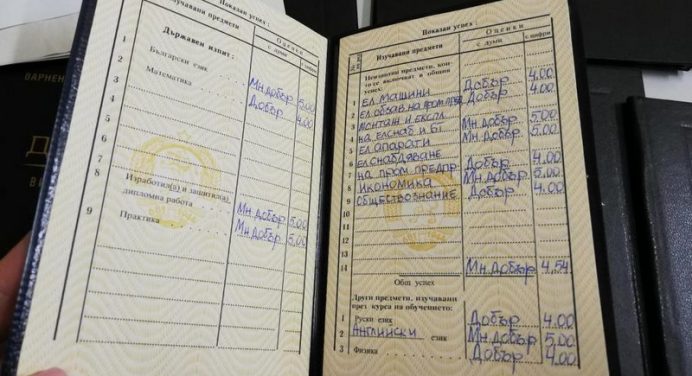 ВАРНЕН
Д
ВИ
Показан успех :
Изучавани предмети
Оценки
с думи
с цифри
Държавен изпит:
1 Български език Мн.добър 5.00
2 Математика Добър 4.00
3
4
5
6
7
8 Изработил(а) и защитил(а)
дипломна работа Мн.добър 5.00
9 Практика Мн.добър 5.00
Показан успех :
№ по ред
Изучавани предмети
Оценки
с думи
с цифри
Неизпитни предмети, кои-
то се включват в общия
успех
1 Ел. машини Добър 4.00
2 Ел. обзав. на пром. пред. Добър 4.00
3 Монтаж и експл.
4 на ел.снаб и ел Мн.добър 5.00
5 Ел. апарати Мн.добър 5.00
6 Елснабдяване
7 на пром. предпр. Добър 4.00
8 Икономика Мн.добър 5.00
9 Обществознание Добър 4.00
10
11
12
13
14
Общ успех Мн.добър 4.54
Други предмети, изучавани
през курса на обучението:
1 Руски език Добър 4.00
2 Английски език Мн.добър 5.00
3 Физика Добър 4.00